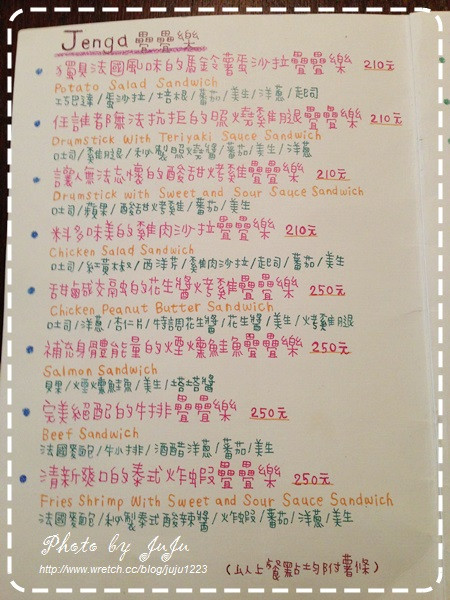 Jenga 疊疊樂
獨具法國風味的馬鈴薯蛋沙拉疊疊樂 210元
Potato Salad Sandwich
巧巴達/蛋沙拉/培根/蕃茄/美生/洋蔥/起司
任誰都無法抗拒的照燒雞腿疊疊樂 210元
Drumstick With Teriyaki Sauce Sandwich
吐司/雞腿/私製照燒醬/蕃茄/美生/洋蔥
讓人無法忘懷的酸甜烤雞疊疊樂 210元
Drumstick with Sweet and Sour Sauce Sandwich
吐司/蘋果/酸甜烤雞/蕃茄/美生
料多味美的雞肉沙拉疊疊樂 210元
Chicken Salad Sandwich
吐司/紅黃椒/西洋芹/雞肉沙拉/起司/蕃茄/美生
甜鹹交融的花生醬烤雞疊疊樂 250元
Chicken Peanut Butter Sandwich
吐司/洋蔥/杏仁片/特調花生醬/花生醬/美生/烤雞腿
補充身體能量的煙燻鮭魚疊疊樂 250元
Salmon Sandwich
貝果/煙燻鮭魚/美生/塔塔醬
完美絕配的牛排疊疊樂 250元
Beef Sandwich
法國麵包/牛小排/酒醋洋蔥/蕃茄/美生
清新爽口的泰式炸蝦疊疊樂 250元
Fries Shrimp With Sweet and Sour Sauce Sandwich
法國麵包/私製泰式酸辣醬/炸蝦/蕃茄/洋蔥/美生
(以上餐點均附薯條)
Photo by JuJu
http://www.wretch.cc/blog/juju1223